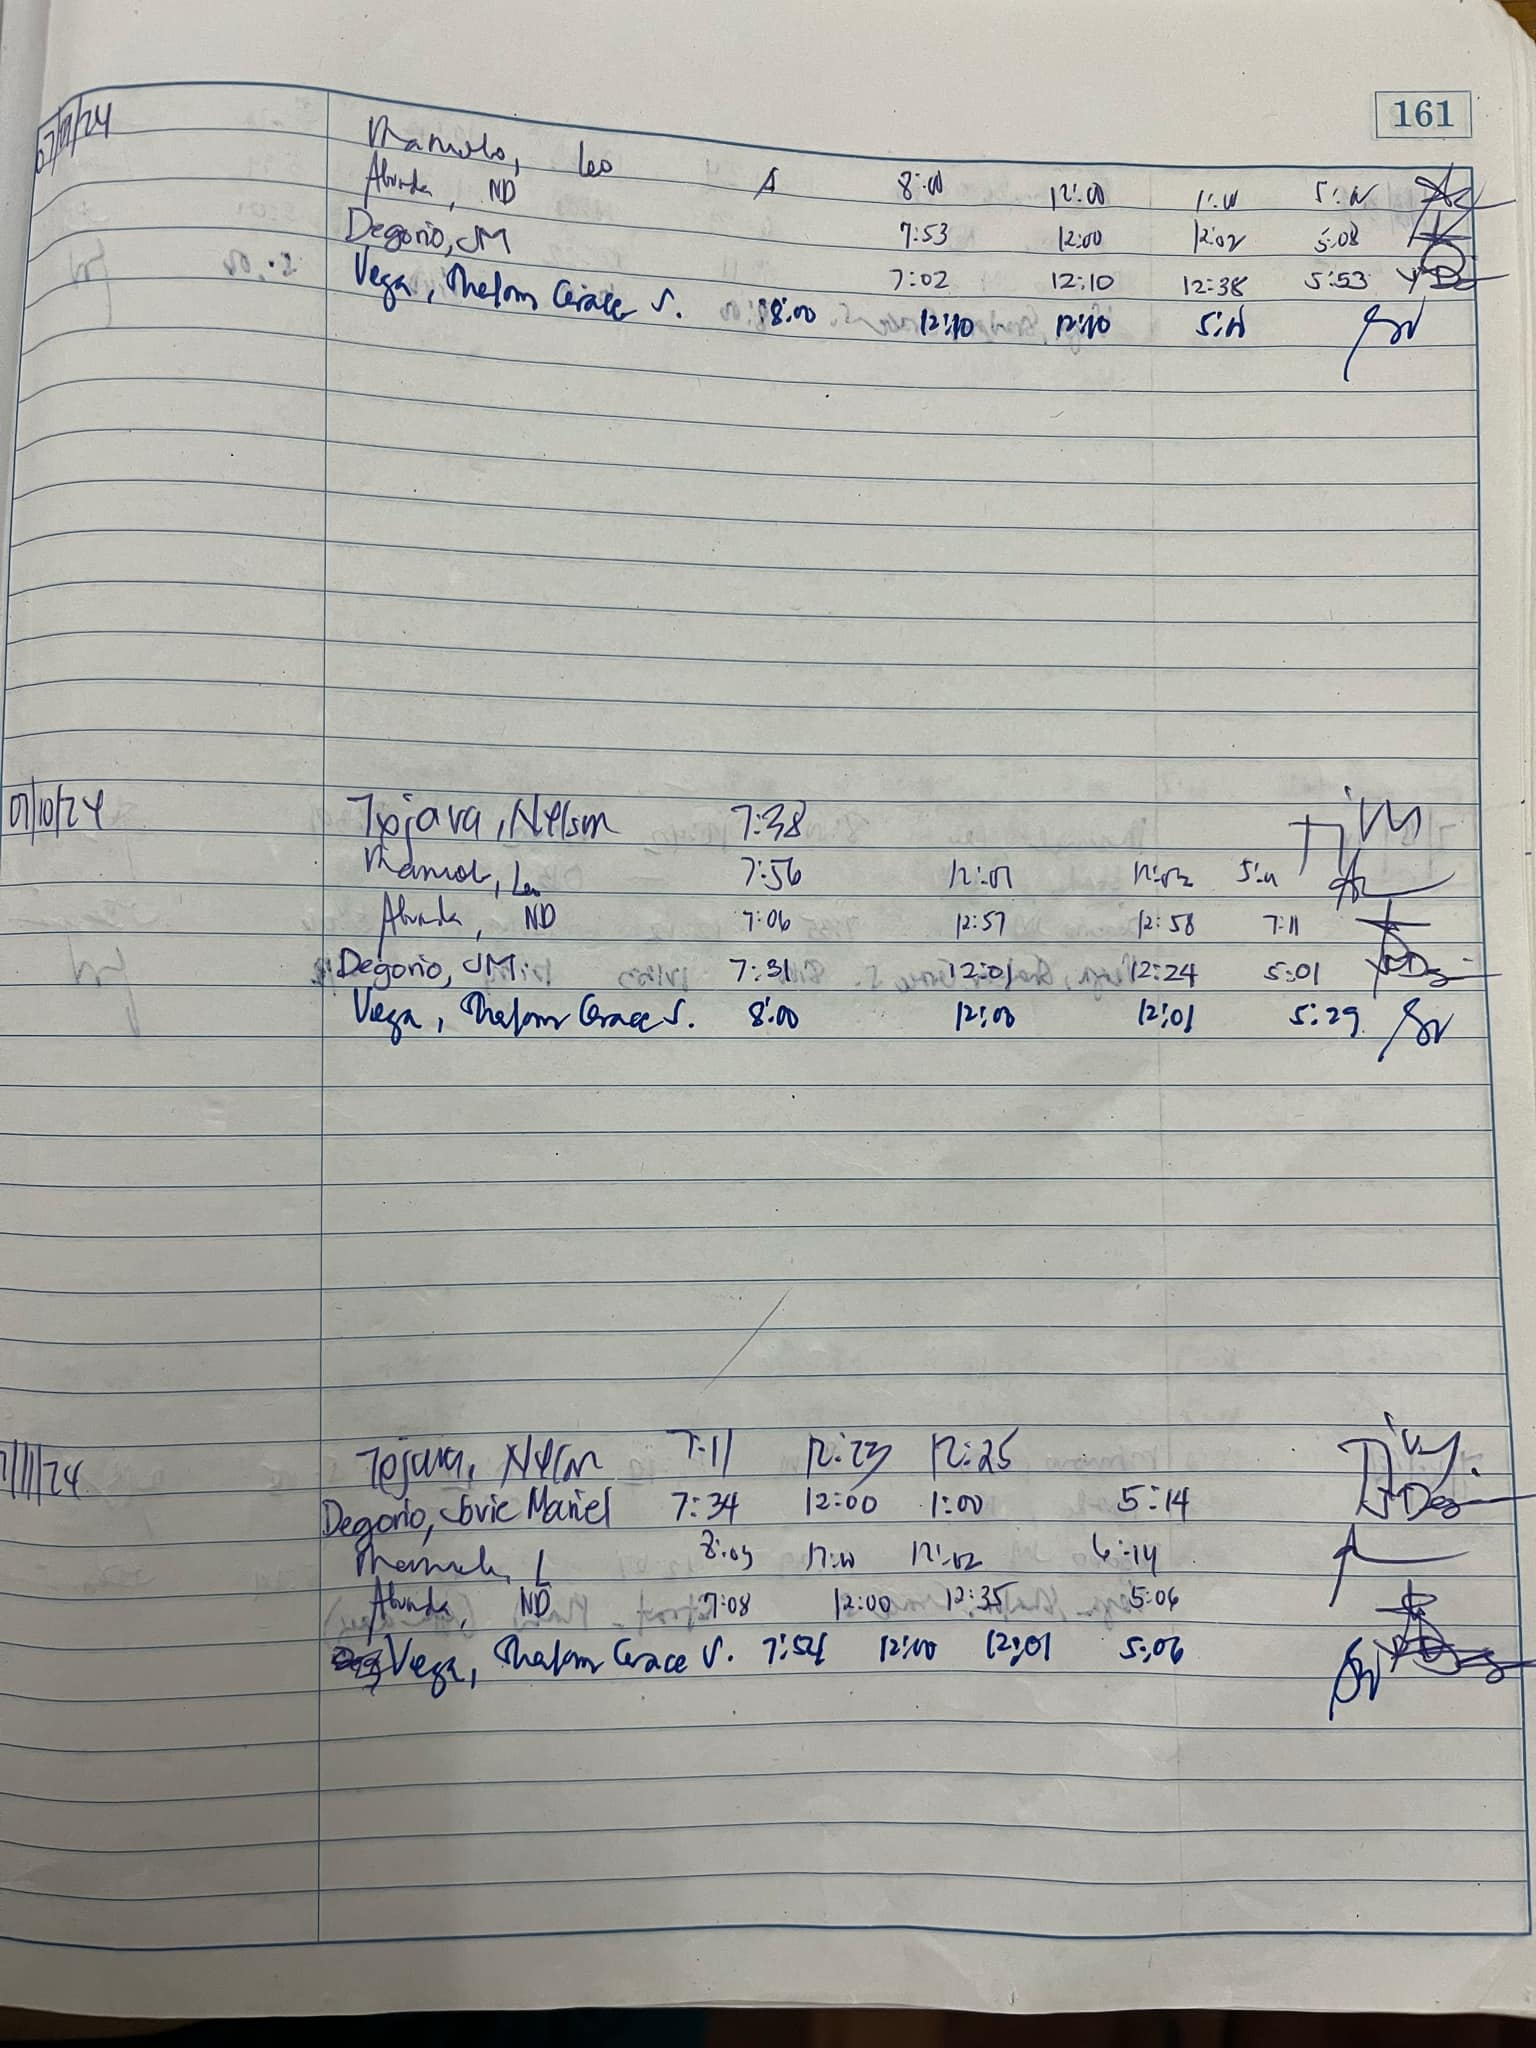 161
07/09/24
Leo A 8:00 12:00 1:00 5:00
Abunda, ND 7:53 12:00 12:02 5:08
Degorio, JM 7:02 12:10 12:38 5:53
Vega, Shalom Grace S. 8:00 12:10 12:10 5:01
07/10/24 Tojava, Nelson 7:38
7:56 12:01 12:02 5:01
Abunda, ND 7:06 12:57 12:58 7:11
Degorio, JM. 7:31 12:01 12:24 5:01
Vega, Shalom Grace S. 8:00 12:00 12:01 5:29
/11/24 Tojava, Nelson 7:11 12:23 12:25
Degorio, Jovic Mariel 7:34 12:00 1:00 5:14
L 8:03 12:00 12:02 6:14
Abunda, ND 7:08 12:00 12:35 5:06
Vega, Shalom Grace S. 7:54 12:00 12:01 5:06